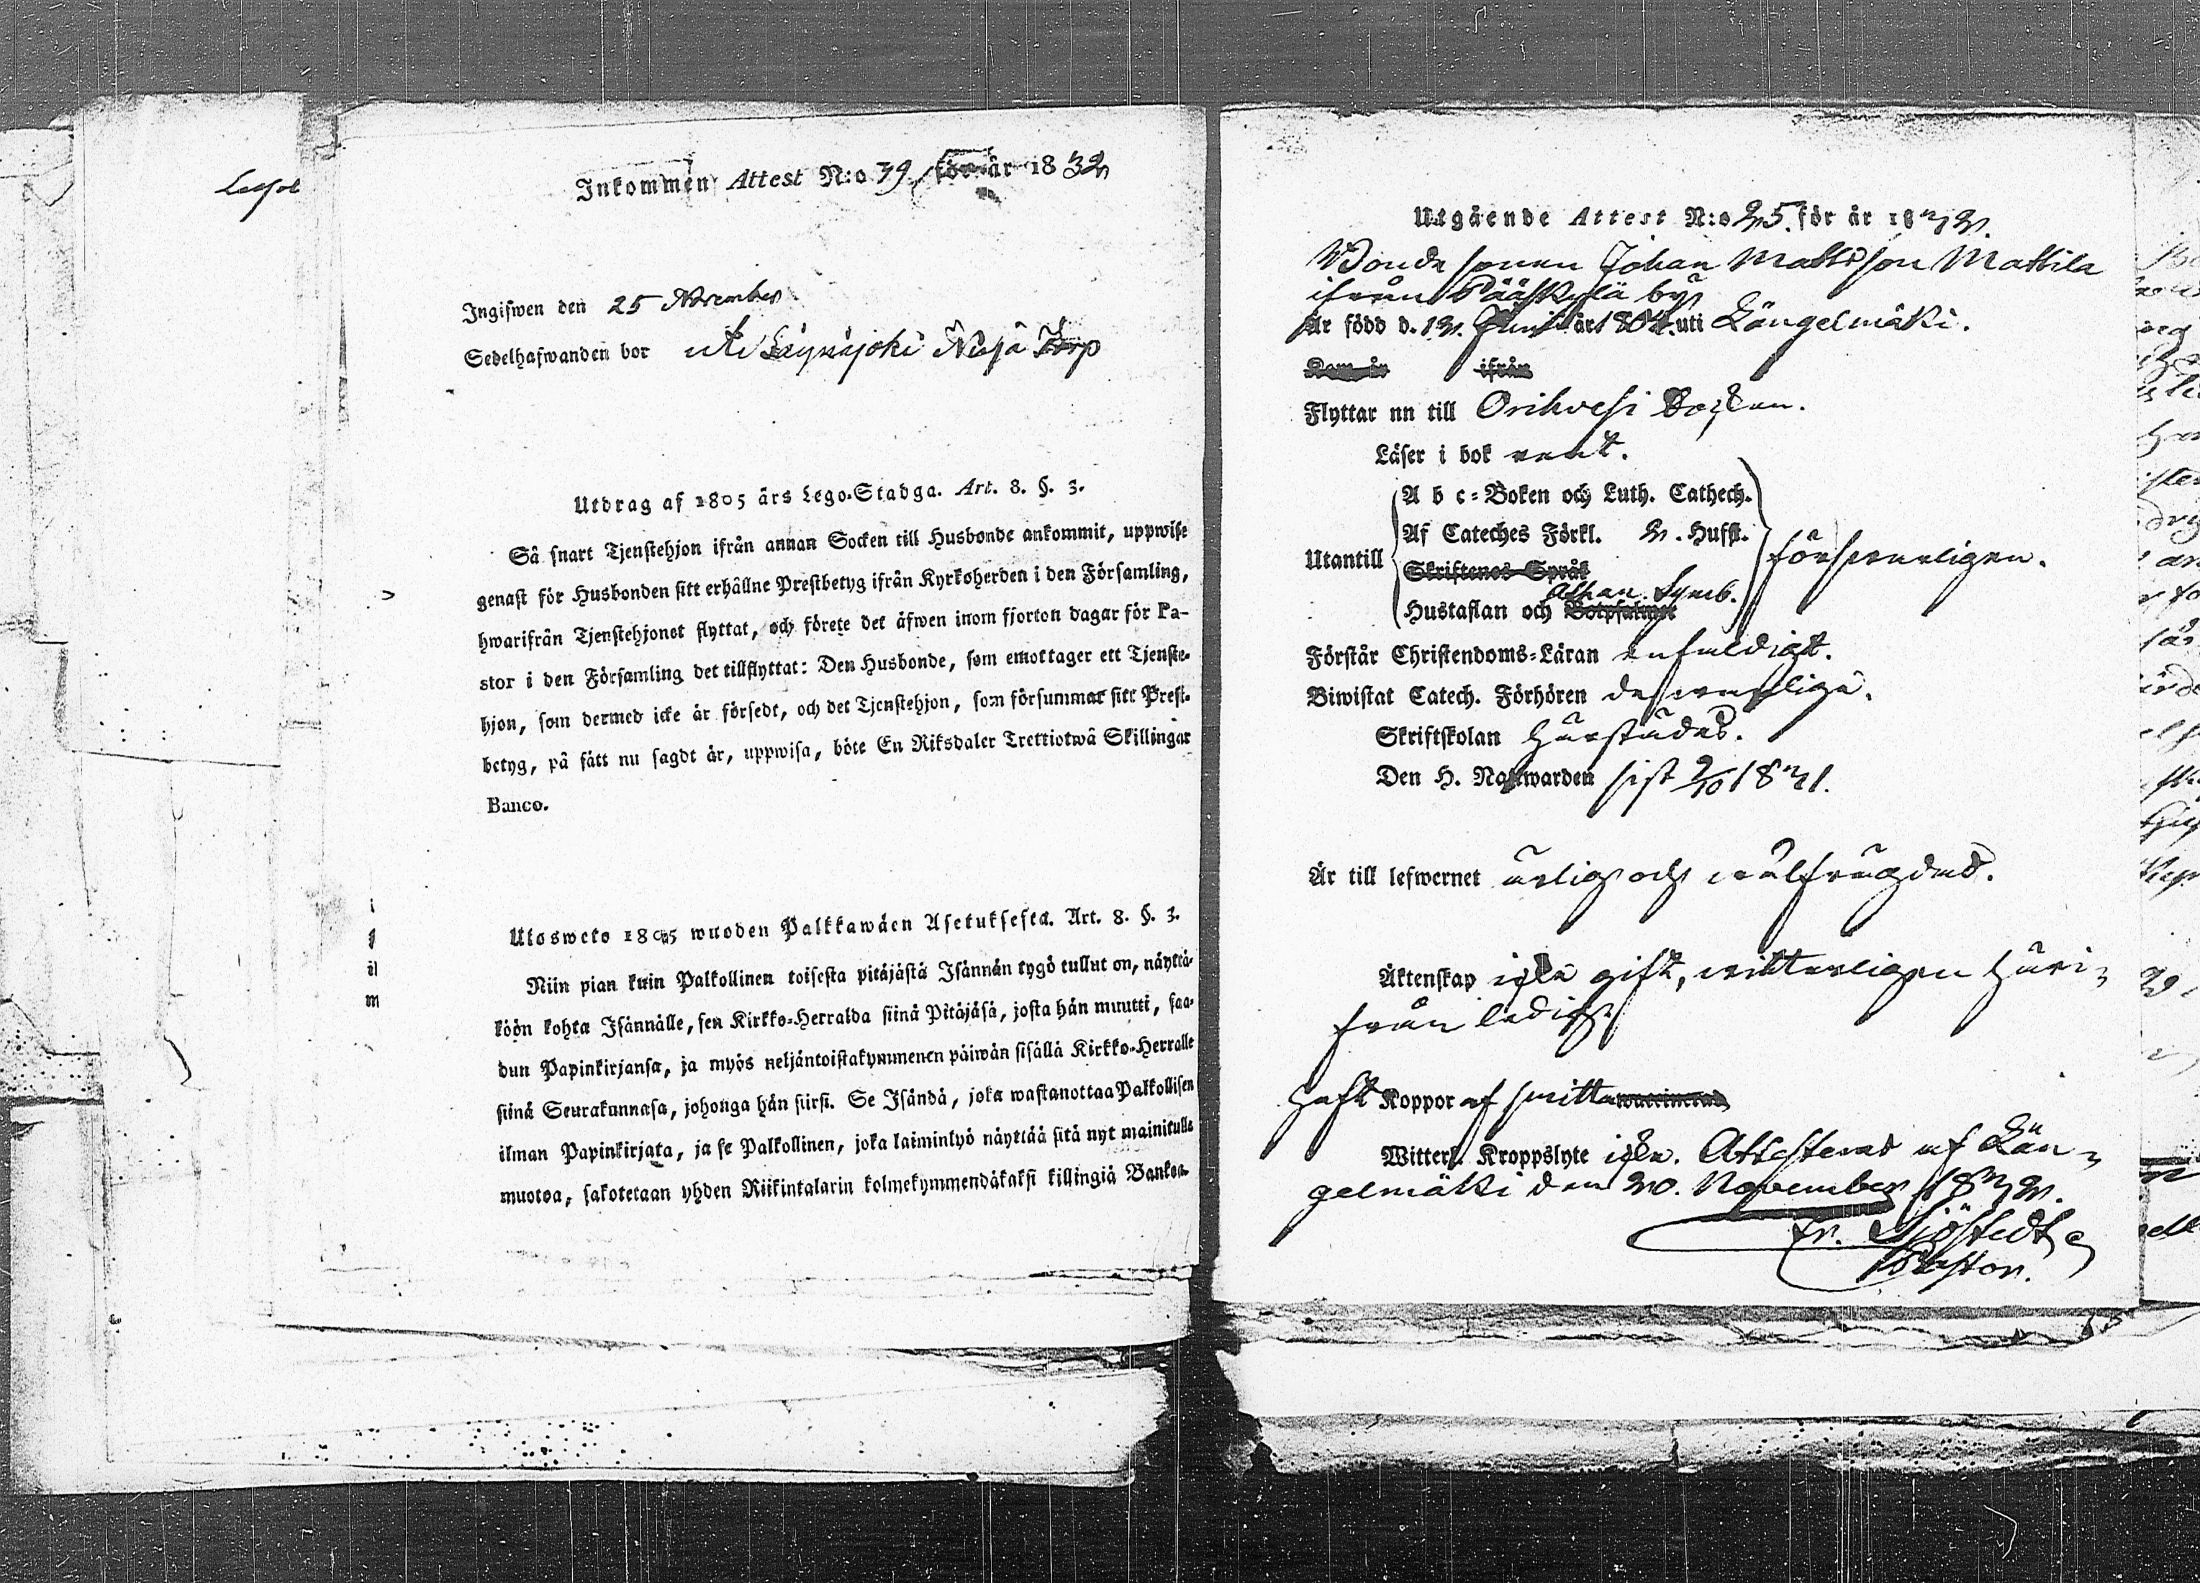 Inkommen Attest N:o 39 för år 1832
Ingifwen den 25 November
Sedelhafwanden bor uti Näsä Torp
Utdrag af 1805 års Lego-Stadga. Art. 8. §. 3.
Så snart Tjenstehjon ifrån annan Socken till Husbonde ankommit, uppwise
genast för Husbonden sitt erhållne Prestbetyg ifrån Kyrkoherden i den Församling,
hwarifrån Tjenstehjonet flyttat, och förete det äfwen inom fjorton dagar för Pa-
stor i den Församling det tillflyttat: Den Husbonde, som emottager ett Tjenste-
hjon, som dermed icke är försedt, och det Tjenstehjon, som försummar sitt Prest-
betyg, på sätt nu sagdt är, uppwisa, böte En Riksdaler Trettiotwå Skillingar
Banco.
Ulosweto 1805 wuoden Palkkawäen Asetuksesta. Art. 8. §. 3.
Niin pian kuin Palkollinen toisesta pitäjästä Isännän tygö tullut on, näyttä-
köön kohta Isännälle, sen Kirkko-Herralda siinä Pitäjäsä, josta hän muutti, saa-
dun Papinkirjansa, ja myös neljäntoistakymmenen päiwän sisällä Kirkko-Herralle
siinä Seurakunnasa, johonga hän siirsi. Se Isändä, joka wastanottaa Palkollisen
ilman Papinkirjata, ja se Palkollinen, joka laiminlyö näyttää sitä nyt mainitulla
muotoa, sakotetaan yhden Riikintalarin kolmekymmendäkaksi killingiä Bankoa.
Utgående Attest N:o 25. för år 1832.
Bonde sonen Johan Mattsson Mattila
ifrån Pääskylä by
Är född d. 12. Junii år 1804. uti Längelmäki.
Kom år ifrån
Flyttar nu till Orihvesi Socken.
Läser i bok rent.
Utantill
A b c-Boken och Luth. Cathech.
Af Cateches Förkl. 2. Hufst.
Skriftenes Språk
Athan. Symb.
Hustaflan och Botpsalmer
försvarligen.
Förstår Christendoms-Läran enfaldigt.
Biwistat Catech. Förhören
Skriftskolan härstädes.
Den H. Nattwarden sist 9/10 1831.
Är till lefwernet ärlig och välfrägdad.
Äktenskap icke gift, vitterligen häri-
från ledig
Haft Koppor af smitta waccinerad
Witterl. Kroppslyte icke. Attesteras af Län-
gelmäki den 20. November 1832.
Fr. Sjöstedt
Pastor.